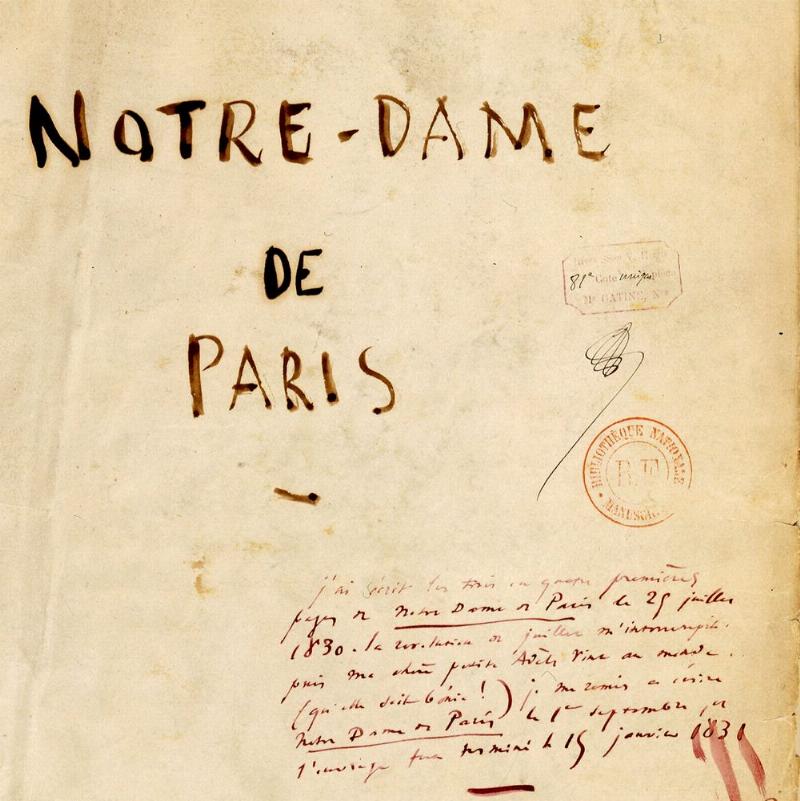 NOTRE-DAME
DE
PARIS
81e Cote unique
Me GATINE, Nre
BIBLIOTHÈQUE NATIONALE
R.F.
MANUSCR
j'ai écrit les trois ou quatre premières
pages de Notre Dame de Paris le 25 juillet
1830. la révolution de juillet m'interrompit.
puis ma chère petite Adèle vint au monde.
(qu'elle soit bénie!) je me remis à écrire
Notre Dame de Paris le 1er septembre, et
l'ouvrage fut terminé le 15 janvier 1831